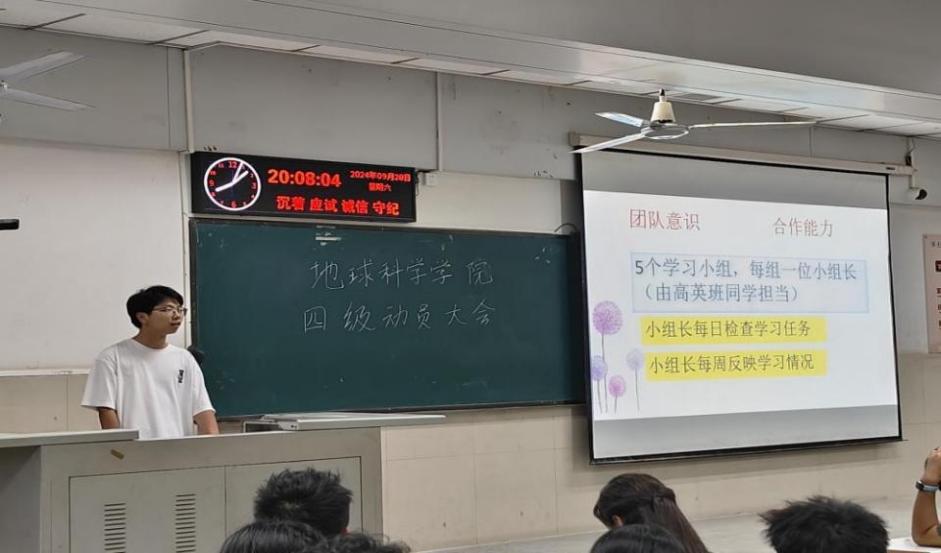 20:08:04
2024年09月28日
星期六
沉着 应试 诚信 守纪
地球科学学院
四级动员大会
团队意识 合作能力
5个学习小组，每组一位小组长
（由高英班同学担当）
小组长每日检查学习任务
小组长每周反映学习情况